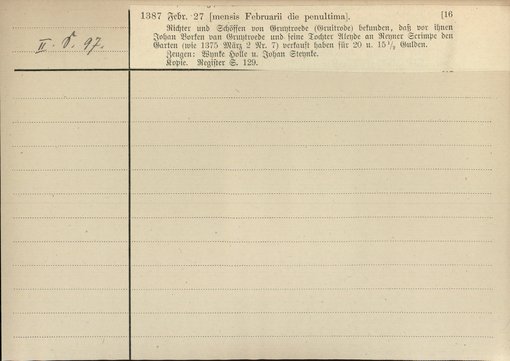 1387 Febr. 27 [mensis Februarii die penultima]. [16
Richter und Schöffen von Gruytroede (Gruitrode) bekunden, daß vor ihnen
Johan Borken van Gruytroede und seine Tochter Aleyde an Reyner Scrimpe den
Garten (wie 1375 März 2 Nr. 7) verkauft haben für 20 u. 15½ Gulden.
Zeugen: Wynke Holle u. Johan Steynke.
Kopie. Register S. 129.
II. 97.